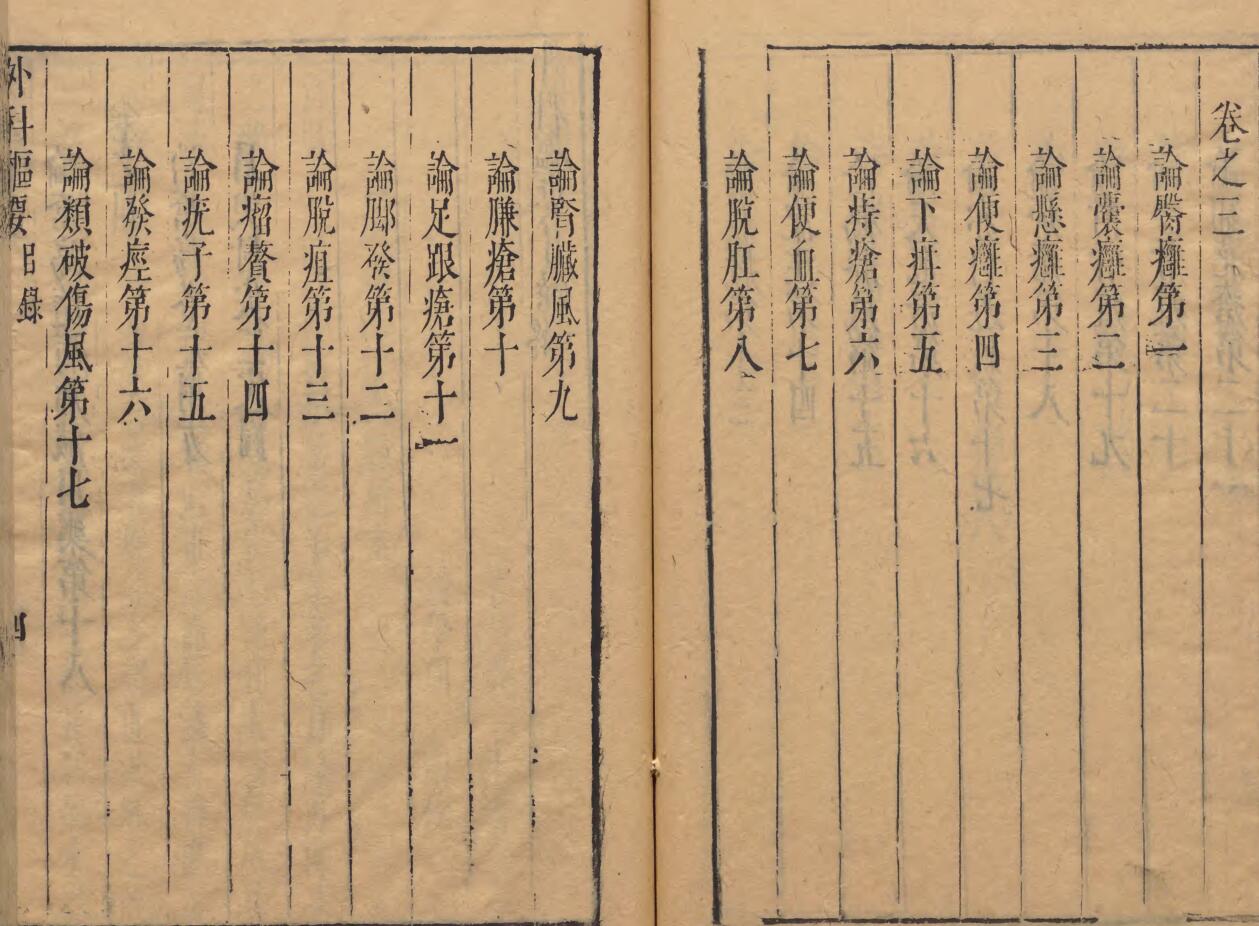 卷之三
論臀癰第一
論囊癰第二
論懸癰第三
論便癰第四
論下疳第五
論痔瘡第六
論便血第七
論脫肛第八
論腎臟風第九
論臁瘡第十
論足跟瘡第十一
論脚發第十二
論脫疽第十三
論瘤贅第十四
論疣子第十五
論發痙第十六
論類破傷風第十七
外科樞要目錄 四